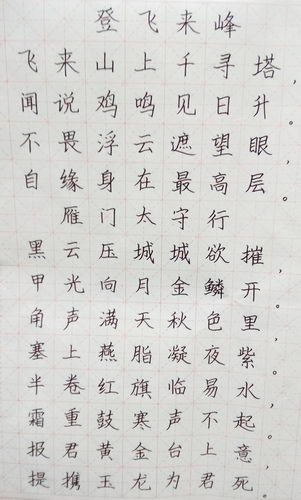 登飞来峰
飞来山上千寻塔，
闻说鸡鸣见日升。
不畏浮云遮望眼，
自缘身在最高层。
雁门太守行
黑云压城城欲摧，
甲光向月金鳞开。
角声满天秋色里，
塞上燕脂凝夜紫。
半卷红旗临易水，
霜重鼓寒声不起。
报君黄金台上意，
提携玉龙为君死。